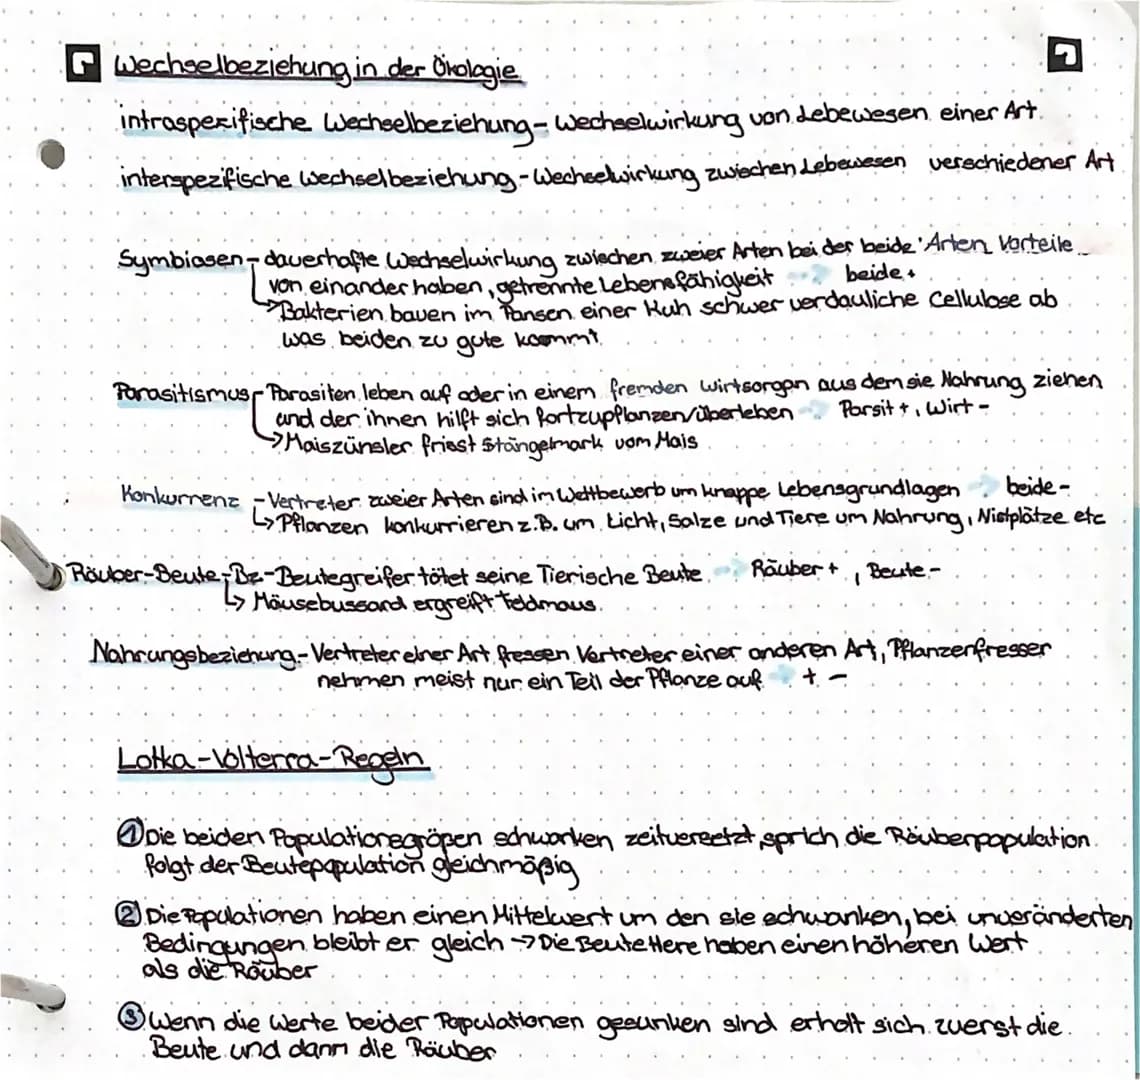 Wechselbeziehung in der Ökologie
intraspezifische Wechselbeziehung - Wechselwirkung von Lebewesen einer Art.
interspezifische Wechselbeziehung - Wechselwirkung zwischen Lebewesen verschiedener Art
Symbiosen - dauerhafte Wechselwirkung zwischen zweier Arten bei der beide Arten Vorteile
von einander haben, getrennte Lebensfähigkeit → beide +
→ Bakterien bauen im Pansen einer Kuh schwer verdauliche Cellulose ab
was beiden zu gute kommt
Parasitismus - Parasiten leben auf oder in einem fremden Wirtsorgan aus dem sie Nahrung ziehen
und der ihnen hilft sich fortzupflanzen/überleben → Parsit +, Wirt -
→ Maiszünsler frisst Stängelmark vom Mais
Konkurrenz - Vertreter zweier Arten sind im Wettbewerb um knappe Lebensgrundlagen → beide -
→ Pflanzen konkurrieren z.B. um Licht, Salze und Tiere um Nahrung, Nistplätze etc
Räuber-Beute-Bz. - Beutegreifer tötet seine Tierische Beute → Räuber +, Beute -
→ Mäusebussard ergreift Feldmaus.
Nahrungsbeziehung - Vertreter einer Art fressen Vertreter einer anderen Art, Pflanzenfresser
nehmen meist nur ein Teil der Pflanze auf → + -
Lotka-Volterra-Regeln
① Die beiden Populationsgrößen schwanken zeitversetzt, sprich die Räuberpopulation
folgt der Beutepopulation gleichmäßig
② Die Populationen haben einen Mittelwert um den sie schwanken, bei unveränderten
Bedingungen bleibt er gleich → Die Beutetiere haben einen höheren Wert
als die Räuber
③ Wenn die Werte beider Populationen gesunken sind erholt sich zuerst die
Beute und dann die Räuber